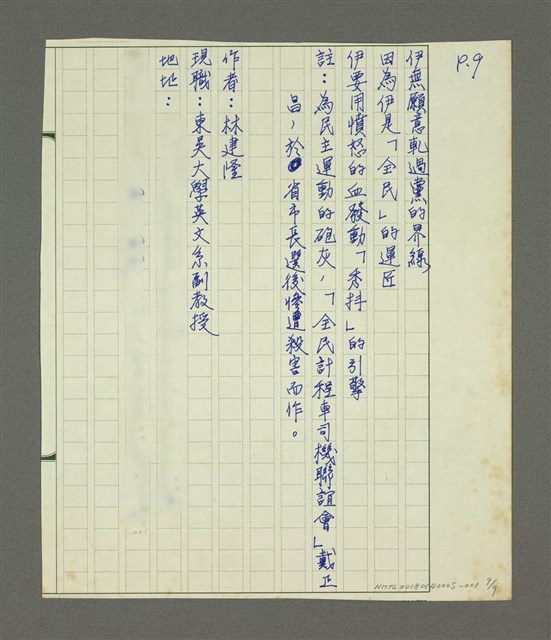 P.9
伊無願意軋過黨的界線
因為伊是「全民」的運匠
伊要用憤怒的血發動「秀抖」的引擎
註：為民主運動的砲灰，「全民計程車司機聯誼會」戴正
昌，於省市長選後慘遭殺害而作。
作者：林建隆
現職：東吳大學英文系副教授
地址：
NMTL20180140005-001 9/9